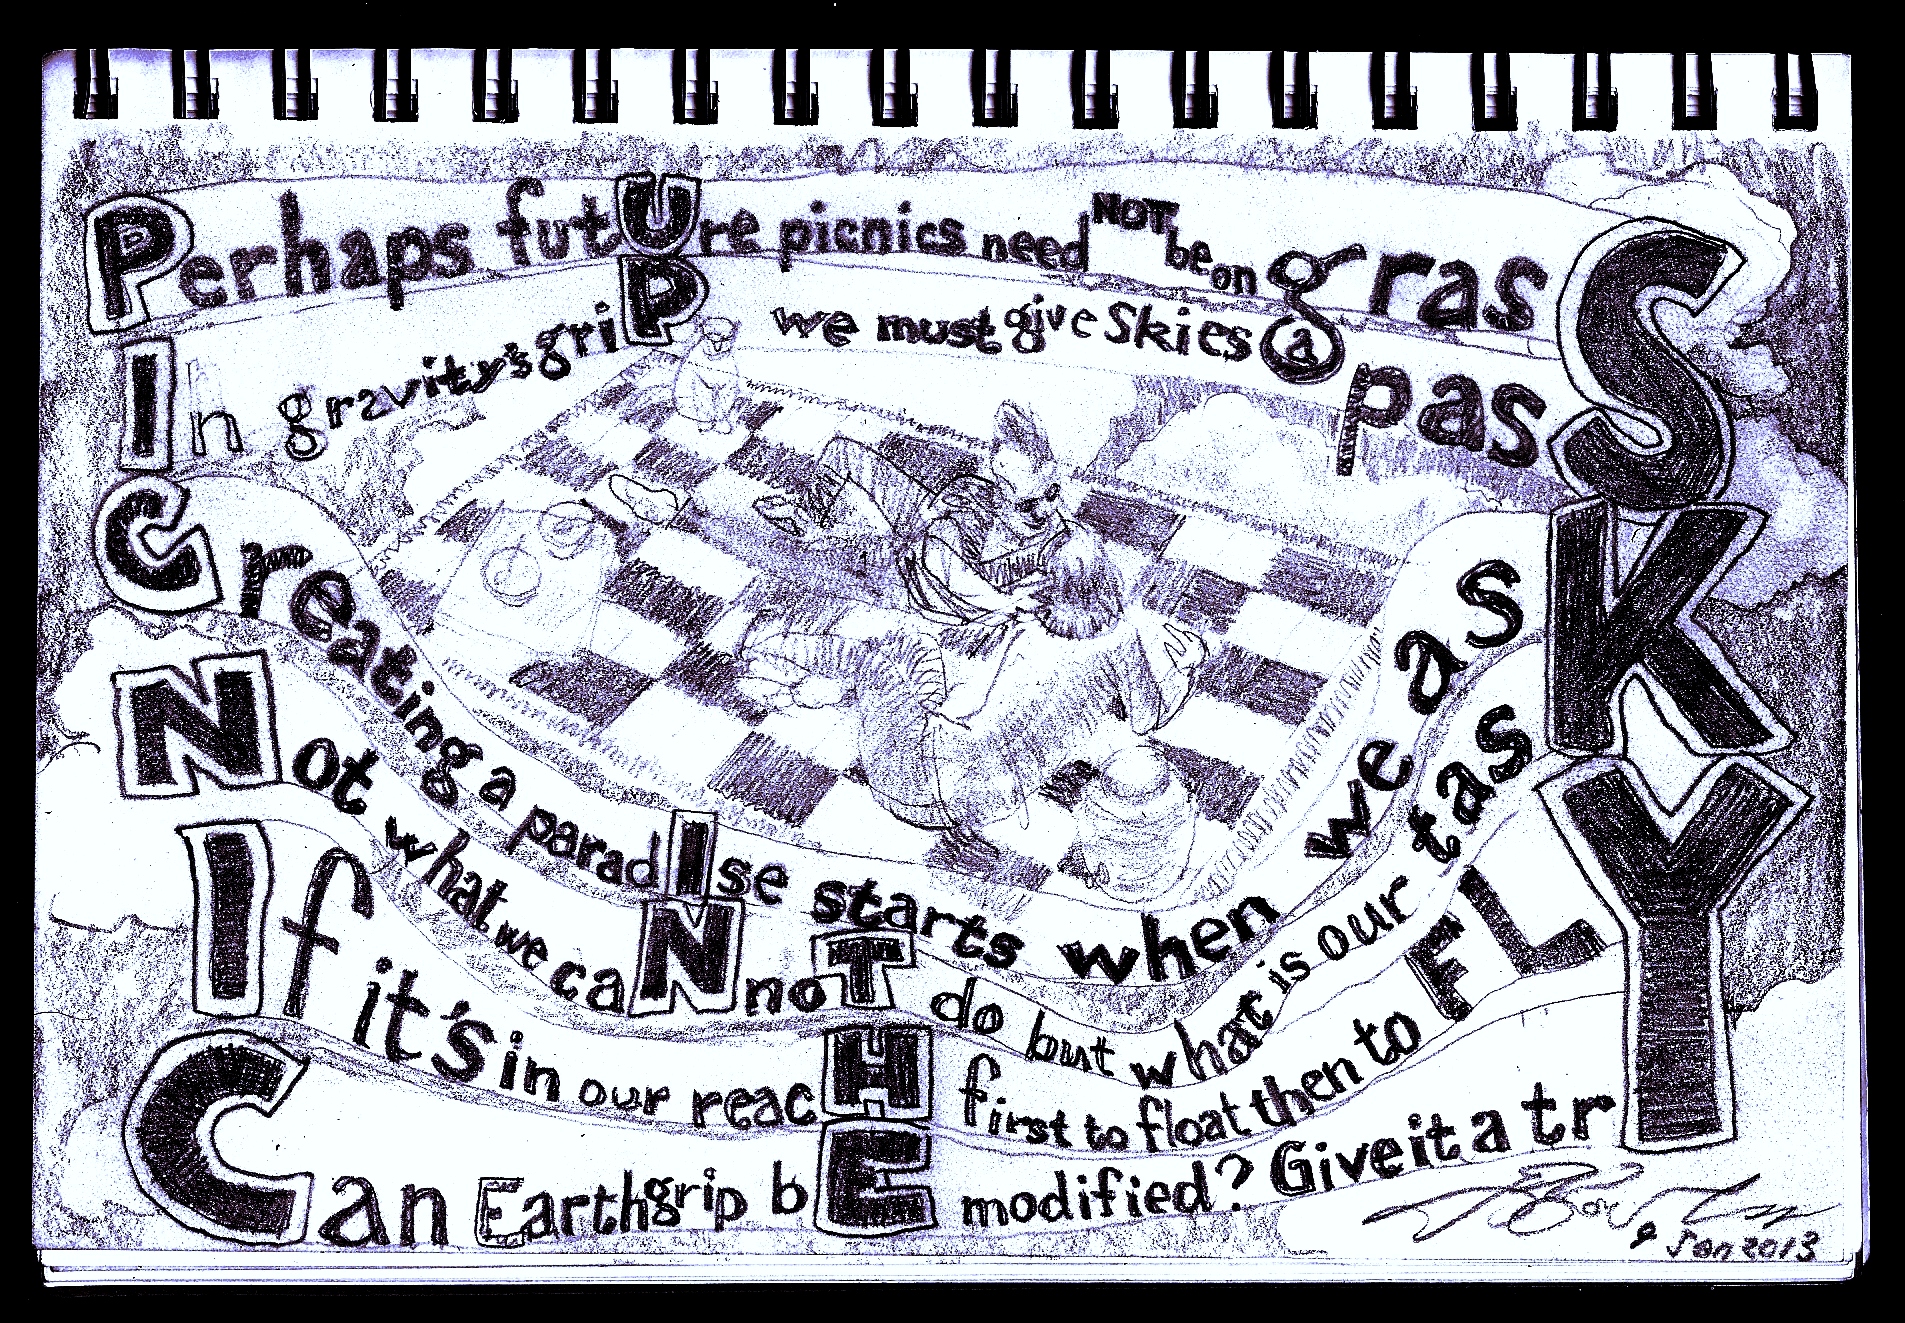 Perhaps futUre picnics need NOT be on grasS
In gravity's griP we must give Skies @ pasS
Creating a paradIse starts when we asK
Not what we caNnoT do but what is our tasK
If it's in our reacH first to float then to FLY
Can Earthgrip bE modified? Give it a trY
9 Jan 2013